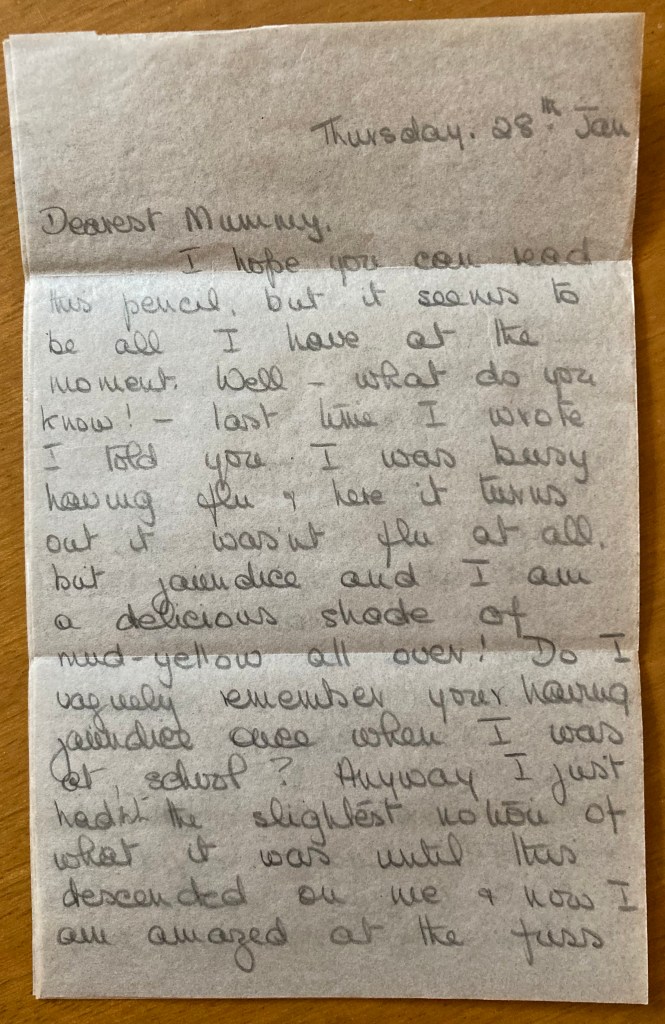 Thursday. 28th Jan
Dearest Mummy.
I hope you can read
this pencil, but it seems to
be all I have at the
moment. Well – what do you
know! – last time I wrote
I told you I was busy
having flu & here it turns
out it was'nt flu at all.
but jaundice and I am
a delicious shade of
mud-yellow all over! Do I
vaguely remember your having
jaundice once when I was
at school? Anyway I just
hadn't the slightest notion of
what it was until this
descended on me & now I
am amazed at the fuss